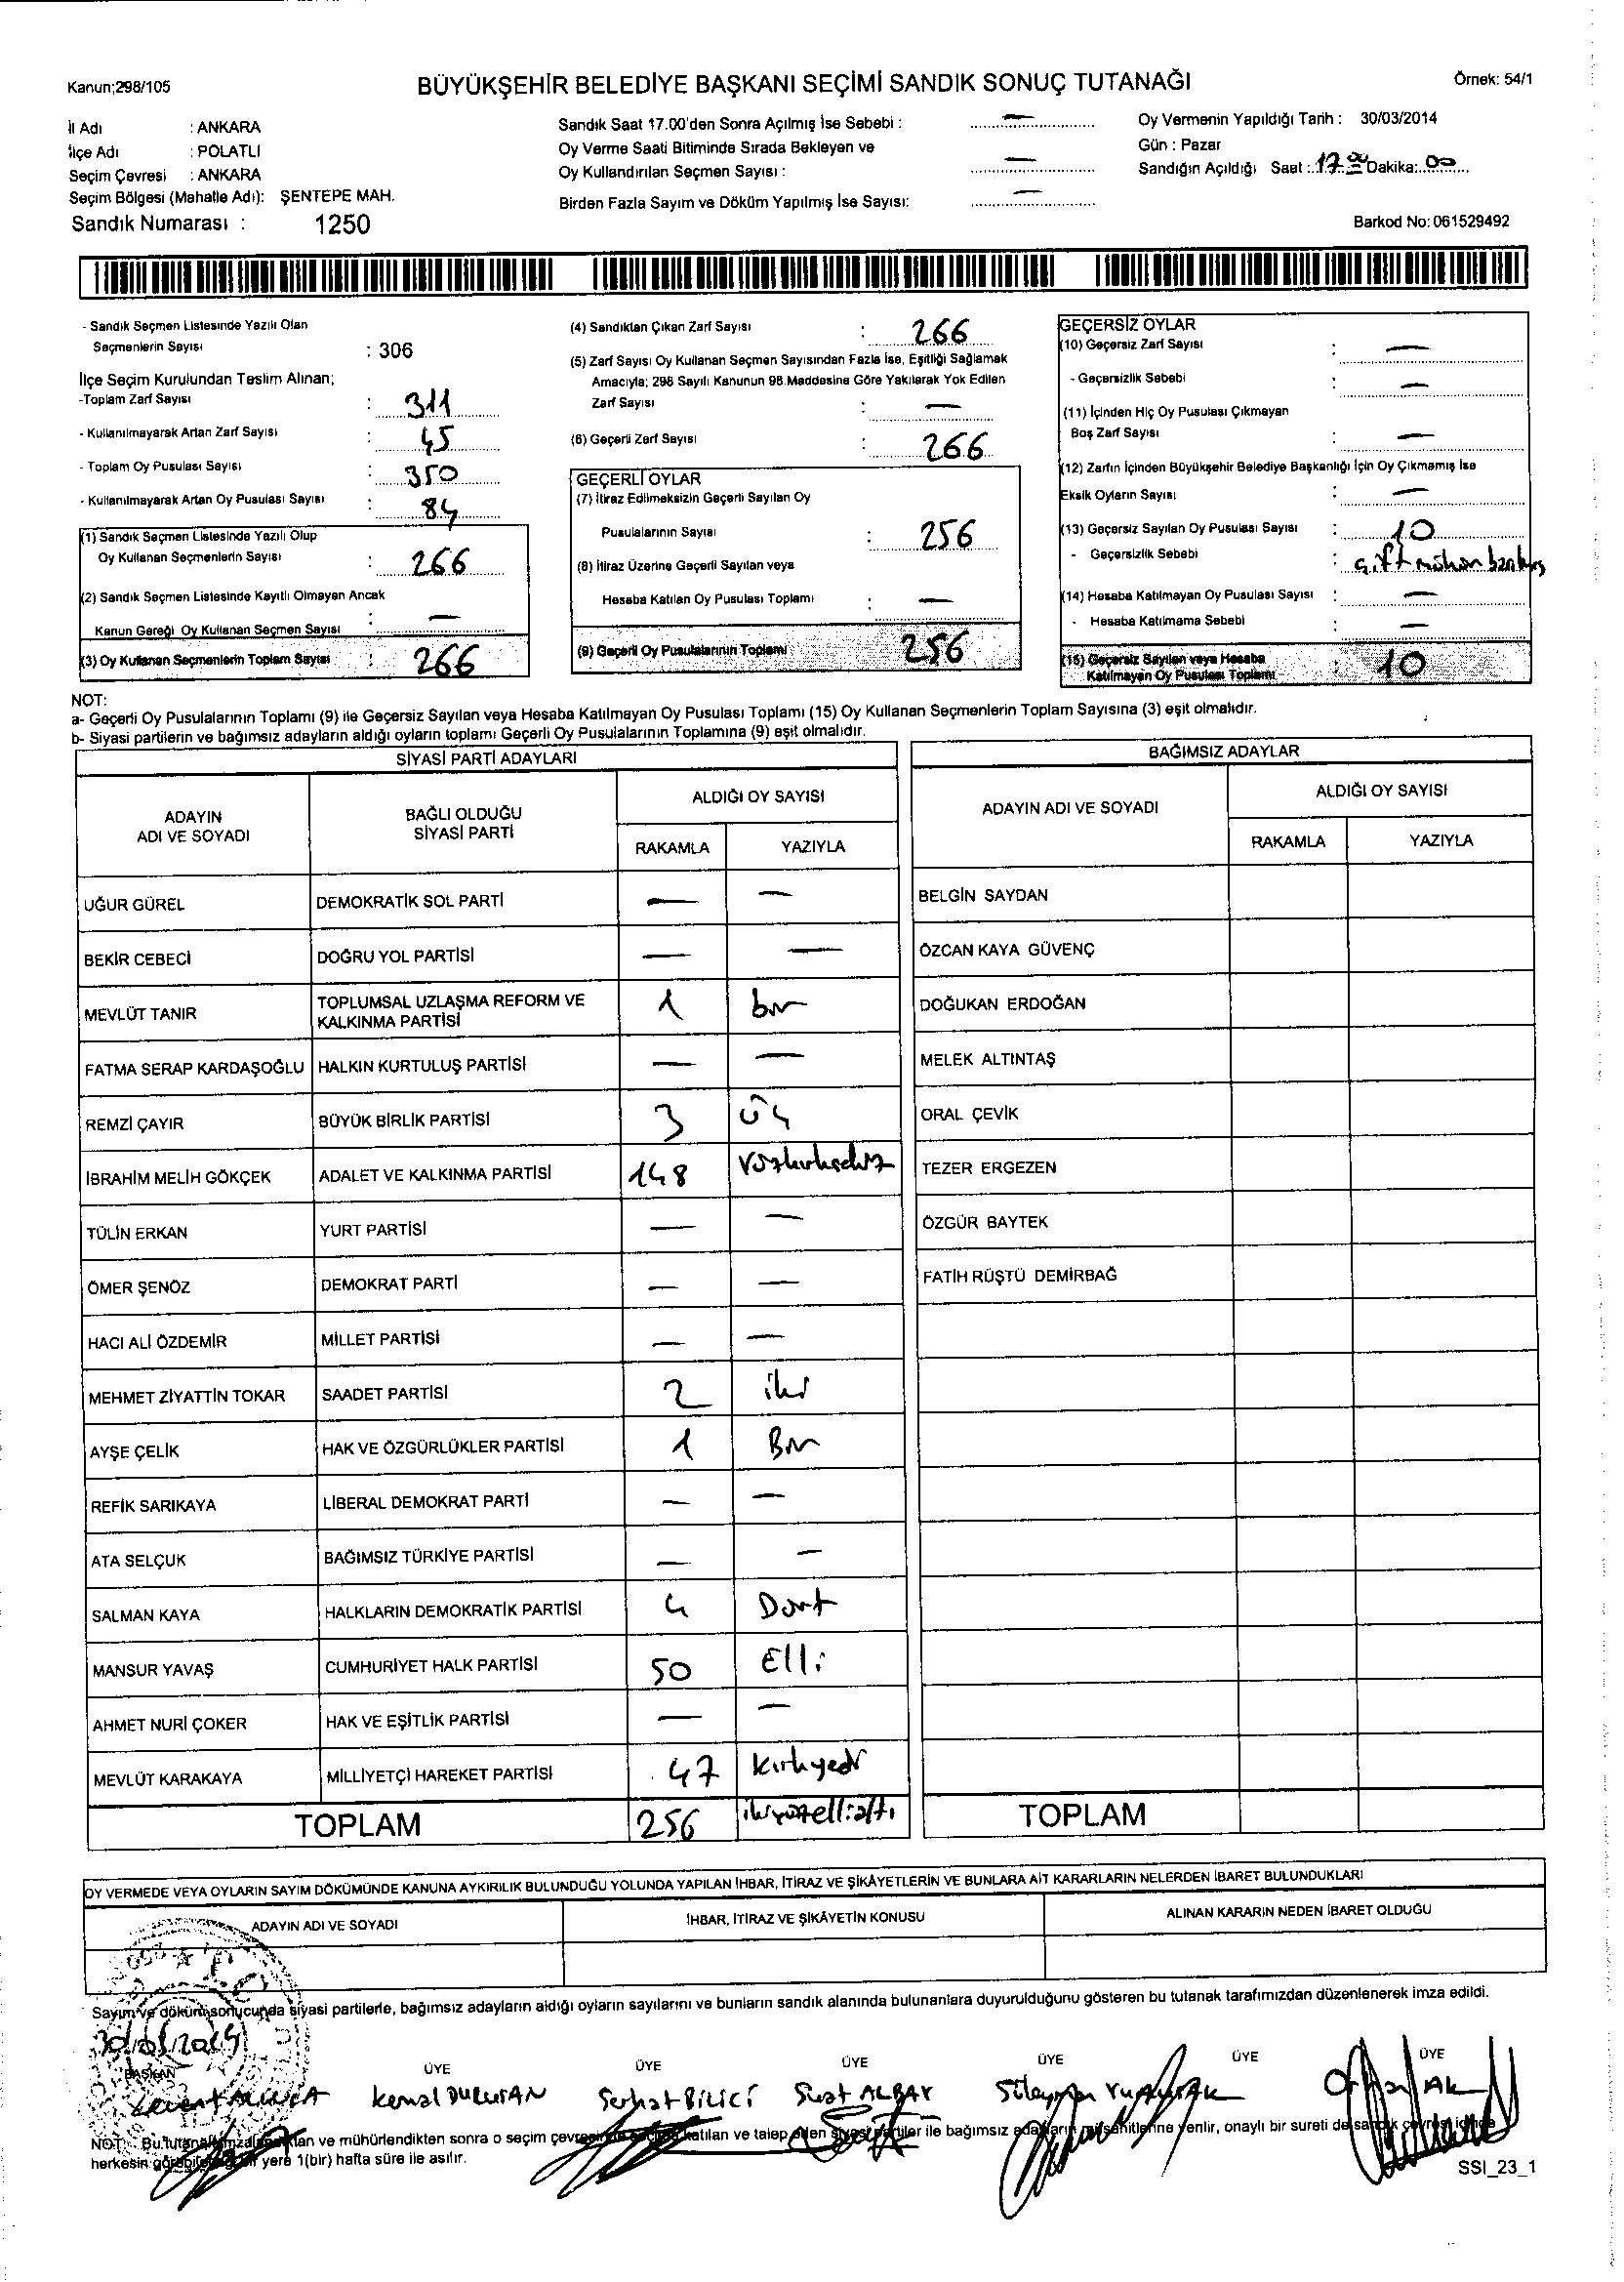 Kanun;298/105
BÜYÜKŞEHİR BELEDİYE BAŞKANI SEÇİMİ SANDIK SONUÇ TUTANAĞI
Örnek: 54/1
İl Adı : ANKARA
İlçe Adı : POLATLI
Seçim Çevresi : ANKARA
Seçim Bölgesi (Mahalle Adı): ŞENTEPE MAH.
Sandık Numarası : 1250
Sandık Saat 17.00'den Sonra Açılmış İse Sebebi : —
Oy Verme Saati Bitiminde Sırada Bekleyen ve
Oy Kullandırılan Seçmen Sayısı : —
Birden Fazla Sayım ve Döküm Yapılmış İse Sayısı: —
Oy Vermenin Yapıldığı Tarih : 30/03/2014
Gün : Pazar
Sandığın Açıldığı Saat : 17.00 Dakika: 00
Barkod No: 061529492
- Sandık Seçmen Listesinde Yazılı Olan
Seçmenlerin Sayısı : 306
İlçe Seçim Kurulundan Teslim Alınan;
-Toplam Zarf Sayısı : 311
- Kullanılmayarak Artan Zarf Sayısı : 45
- Toplam Oy Pusulası Sayısı : 350
- Kullanılmayarak Artan Oy Pusulası Sayısı : 84
(1) Sandık Seçmen Listesinde Yazılı Olup
Oy Kullanan Seçmenlerin Sayısı : 266
(2) Sandık Seçmen Listesinde Kayıtlı Olmayan Ancak
Kanun Gereği Oy Kullanan Seçmen Sayısı : —
(3) Oy Kullanan Seçmenlerin Toplam Sayısı : 266
(4) Sandıktan Çıkan Zarf Sayısı : 266
(5) Zarf Sayısı Oy Kullanan Seçmen Sayısından Fazla İse, Eşitliği Sağlamak
Amacıyla; 298 Sayılı Kanunun 98.Maddesine Göre Yakılarak Yok Edilen
Zarf Sayısı : —
(6) Geçerli Zarf Sayısı : 266
GEÇERLİ OYLAR
(7) İtiraz Edilmeksizin Geçerli Sayılan Oy
Pusulalarının Sayısı : 256
(8) İtiraz Üzerine Geçerli Sayılan veya
Hesaba Katılan Oy Pusulası Toplamı : —
(9) Geçerli Oy Pusulalarının Toplamı 256
GEÇERSİZ OYLAR
(10) Geçersiz Zarf Sayısı : —
- Geçersizlik Sebebi : —
(11) İçinden Hiç Oy Pusulası Çıkmayan
Boş Zarf Sayısı : —
(12) Zarfın İçinden Büyükşehir Belediye Başkanlığı İçin Oy Çıkmamış İse
Eksik Oyların Sayısı : —
(13) Geçersiz Sayılan Oy Pusulası Sayısı : 10
- Geçersizlik Sebebi : Çift mühür
(14) Hesaba Katılmayan Oy Pusulası Sayısı : —
- Hesaba Katılmama Sebebi —
(15) Geçersiz Sayılan veya Hesaba
Katılmayan Oy Pusulası Toplamı : 10
NOT:
a- Geçerli Oy Pusulalarının Toplamı (9) ile Geçersiz Sayılan veya Hesaba Katılmayan Oy Pusulası Toplamı (15) Oy Kullanan Seçmenlerin Toplam Sayısına (3) eşit olmalıdır.
b- Siyasi partilerin ve bağımsız adayların aldığı oyların toplamı Geçerli Oy Pusulalarının Toplamına (9) eşit olmalıdır.
SİYASİ PARTİ ADAYLARI
ADAYIN ADI VE SOYADI BAĞLI OLDUĞU SİYASİ PARTİ ALDIĞI OY SAYISI
RAKAMLA YAZIYLA
UĞUR GÜREL DEMOKRATİK SOL PARTİ — —
BEKİR CEBECİ DOĞRU YOL PARTİSİ — —
MEVLÜT TANIR TOPLUMSAL UZLAŞMA REFORM VE KALKINMA PARTİSİ 1 bir
FATMA SERAP KARDAŞOĞLU HALKIN KURTULUŞ PARTİSİ — —
REMZİ ÇAYIR BÜYÜK BİRLİK PARTİSİ 3 üç
İBRAHİM MELİH GÖKÇEK ADALET VE KALKINMA PARTİSİ 148 Yüzkırksekiz
TÜLİN ERKAN YURT PARTİSİ — —
ÖMER ŞENÖZ DEMOKRAT PARTİ — —
HACI ALİ ÖZDEMİR MİLLET PARTİSİ — —
MEHMET ZİYATTİN TOKAR SAADET PARTİSİ 2 iki
AYŞE ÇELİK HAK VE ÖZGÜRLÜKLER PARTİSİ 1 Bir
REFİK SARIKAYA LİBERAL DEMOKRAT PARTİ — —
ATA SELÇUK BAĞIMSIZ TÜRKİYE PARTİSİ — —
SALMAN KAYA HALKLARIN DEMOKRATİK PARTİSİ 4 Dört
MANSUR YAVAŞ CUMHURİYET HALK PARTİSİ 50 Elli
AHMET NURİ ÇOKER HAK VE EŞİTLİK PARTİSİ — —
MEVLÜT KARAKAYA MİLLİYETÇİ HAREKET PARTİSİ 47 Kırkyedi
TOPLAM 256 ikiyüzellialtı
BAĞIMSIZ ADAYLAR
ADAYIN ADI VE SOYADI ALDIĞI OY SAYISI
RAKAMLA YAZIYLA
BELGİN SAYDAN
ÖZCAN KAYA GÜVENÇ
DOĞUKAN ERDOĞAN
MELEK ALTINTAŞ
ORAL ÇEVİK
TEZER ERGEZEN
ÖZGÜR BAYTEK
FATİH RÜŞTÜ DEMİRBAĞ
TOPLAM
OY VERMEDE VEYA OYLARIN SAYIM DÖKÜMÜNDE KANUNA AYKIRILIK BULUNDUĞU YOLUNDA YAPILAN İHBAR, İTİRAZ VE ŞİKÂYETLERİN VE BUNLARA AİT KARARLARIN NELERDEN İBARET BULUNDUKLARI
ADAYIN ADI VE SOYADI İHBAR, İTİRAZ VE ŞİKÂYETİN KONUSU ALINAN KARARIN NEDEN İBARET OLDUĞU
Sayım ve döküm sonucunda siyasi partilerle, bağımsız adayların aldığı oyların sayılarını ve bunların sandık alanında bulunanlara duyurulduğunu gösteren bu tutanak tarafımızdan düzenlenerek imza edildi.
BAŞKAN ÜYE ÜYE ÜYE ÜYE ÜYE ÜYE
Kemal Serhat BİLİCİ Suat ALBAY Süleyman AK
NOT: Bu tutanak imzalandıktan ve mühürlendikten sonra o seçim çevresinde seçime katılan ve talep eden siyasi partiler ile bağımsız adayların müşahitlerine verilir, onaylı bir sureti de sandık çevresi içinde
herkesin görebileceği bir yere 1(bir) hafta süre ile asılır.
SSI_23_1